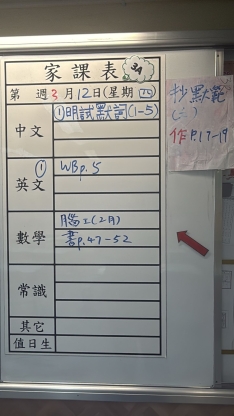 家課表 3A
第 週 3月12日(星期 四)
中文 ①明試默詞(1-5)
英文 ① WBp.5
數學 腦工(2月)
書p.47-52
常識
其它
值日生
抄默範
(六)
作P.17-19